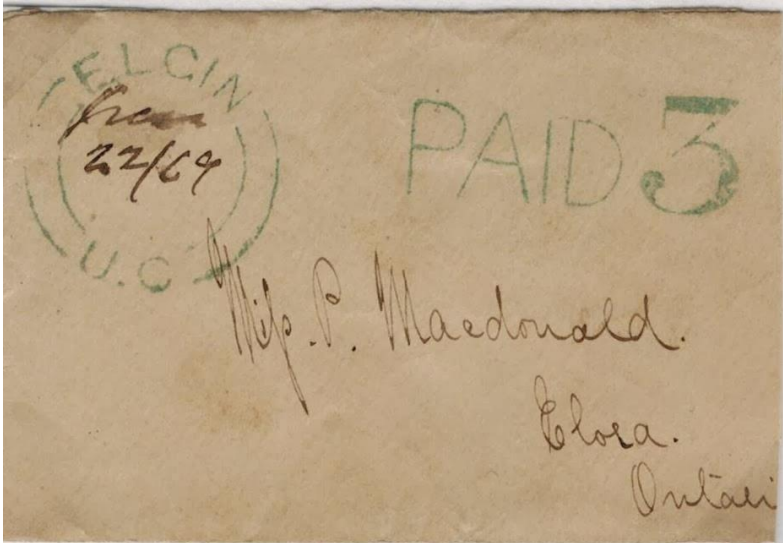 ELGIN
22/69
U.C
PAID 3
Miss. P. Macdonald.
Elora.
Ontari